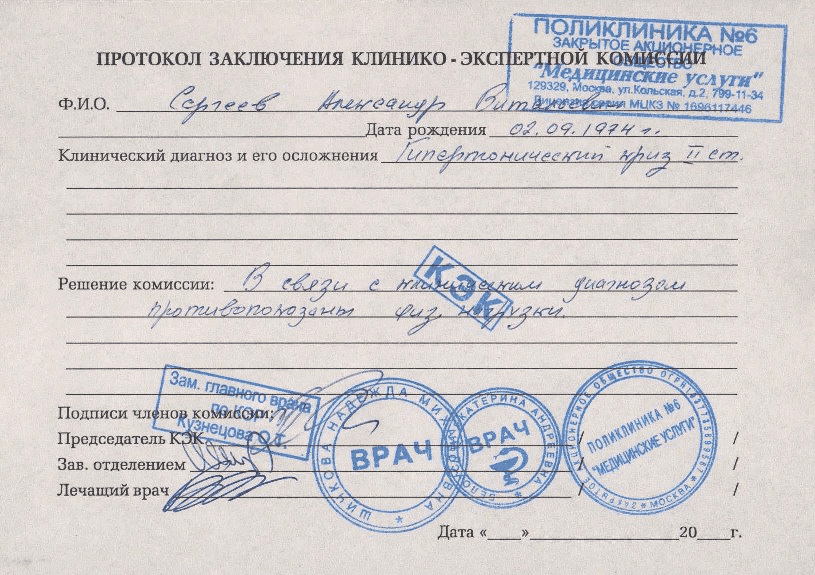 ПОЛИКЛИНИКА №6
ЗАКРЫТОЕ АКЦИОНЕРНОЕ
ОБЩЕСТВО
"Медицинские услуги"
129329, Москва, ул.Кольская, д.2, 799-11-34
Лицензия серия МЦКЗ № 1696117446
ПРОТОКОЛ ЗАКЛЮЧЕНИЯ КЛИНИКО - ЭКСПЕРТНОЙ КОМИССИИ
Ф.И.О. Сергеев Александр Витальевич
Дата рождения 02.09.1974 г.
Клинический диагноз и его осложнения Гипертонический криз II ст.
Решение комиссии: В связи с клиническим диагнозом
КЭК
противопоказаны физ. нагрузки.
Зам. главного врача
по КЭР
Кузнецова О.Г.
Подписи членов комиссии:
Председатель КЭК / /
Зав. отделением / /
Лечащий врач / /
ШИНКОВА НАДЕЖДА МИХ
ВРАЧ
ЕКАТЕРИНА АНДРЕЕВНА
ВРАЧ
ПОЛИКЛИНИКА №6
"МЕДИЦИНСКИЕ УСЛУГИ"
* МОСКВА *
Дата «____»____________________20____г.